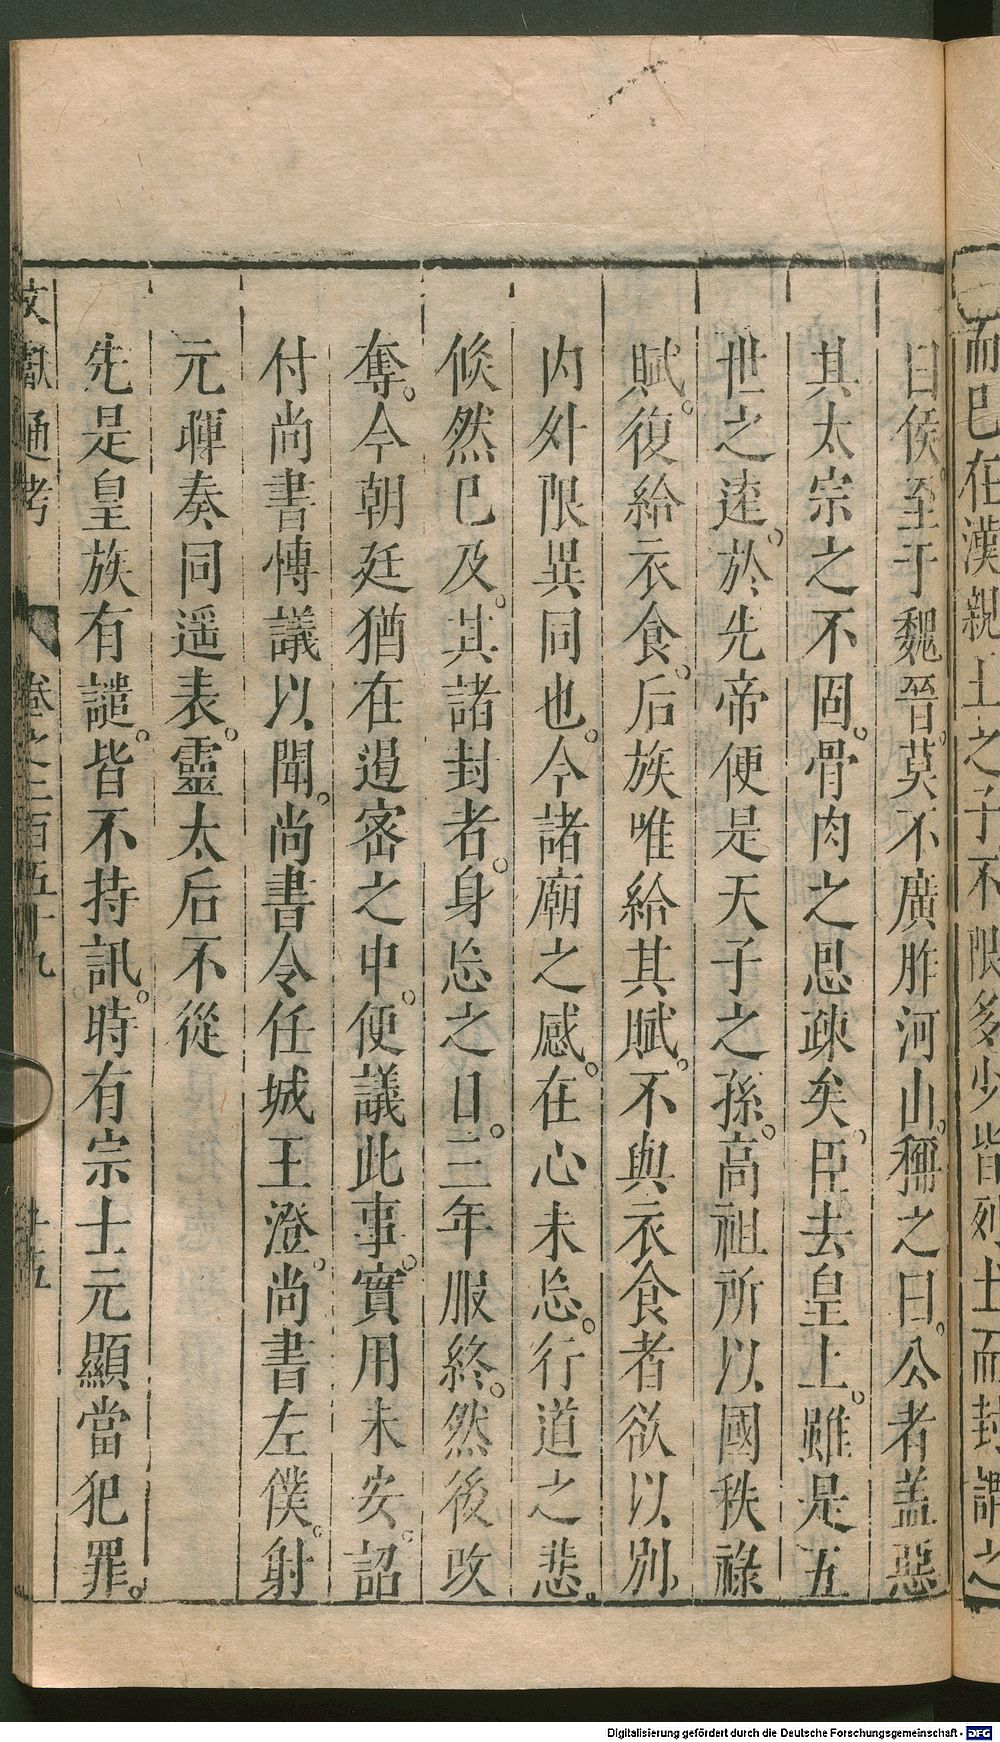 而已在漢親王之子不限多少皆列土而封謂之
曰侯至于魏晉莫不廣胙河山稱之曰公者蓋惡
其太宗之不固骨肉之恩疎矣臣去皇上雖是五
世之逺於先帝便是天子之孫高祖所以國秩祿
賦復給衣食后族唯給其賦不與衣食者欲以別
内外限異同也今諸廟之感在心未忘行道之悲
倐然已及其諸封者身忘之日三年服終然後改
奪今朝廷猶在遏密之中便議此事實用未安詔
付尚書愽議以聞尚書令任城王澄尚書左僕射
元暉奏同遥表靈太后不從
先是皇族有譴皆不持訊時有宗士元顯當犯罪
文獻通考 卷之二百五十九 十五
Digitalisierung gefördert durch die Deutsche Forschungsgemeinschaft - DFG